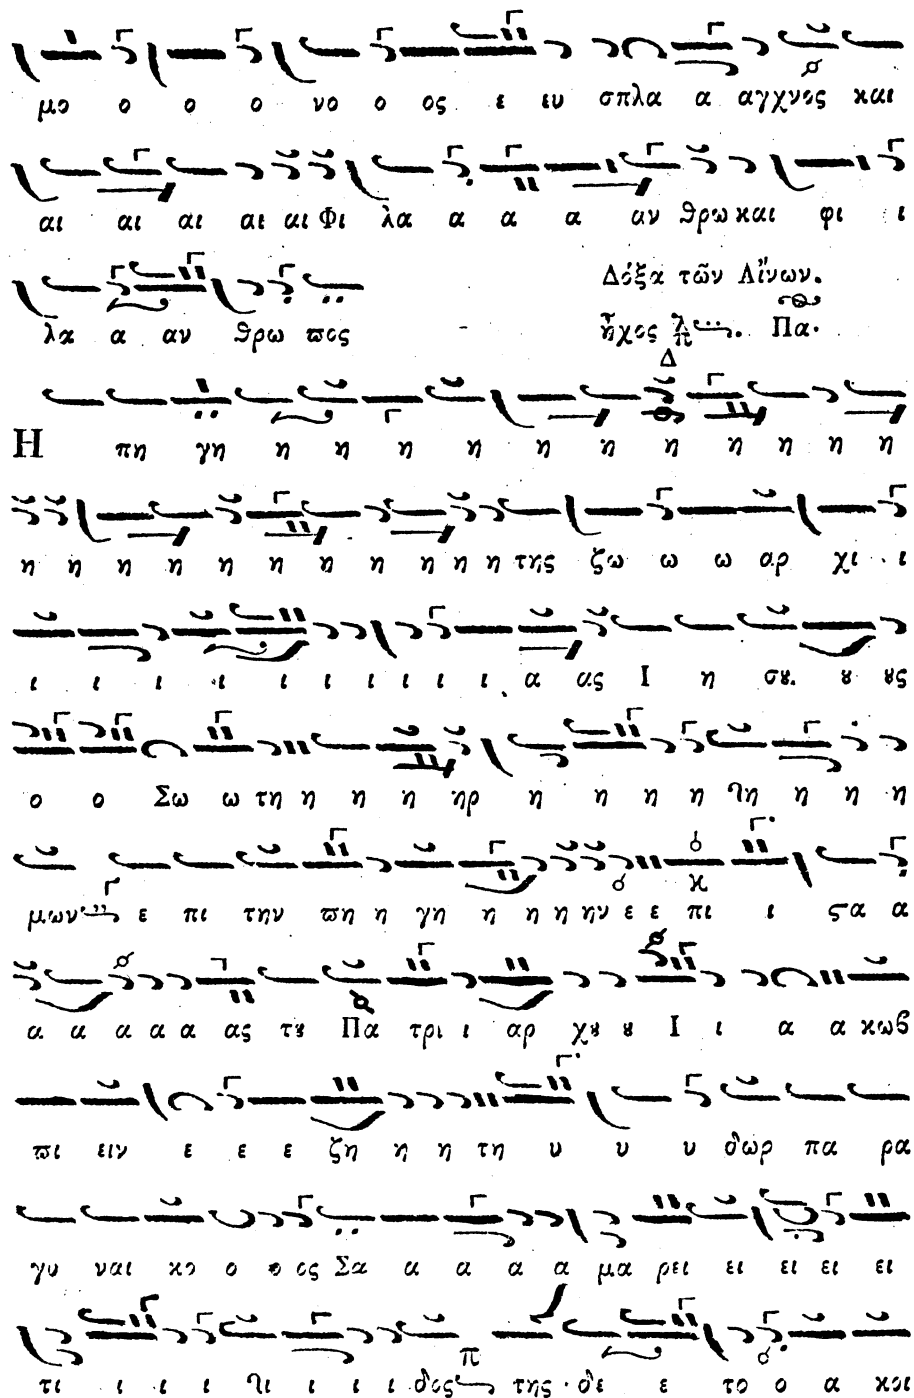 μο ο ο ο νο ο ος ε ευ σπλα α αγχνος και
αι αι αι αι αι Φι λα α α α αν θρω και φι ι
λα α αν θρω πος
Δόξα τῶν Αἴνων.
ἦχος λ π Πα.
Δ
Η πη γη η η η η η η η η η η η
η η η η η η η η η η η της ζω ω ω αρ χι ι
ι ι ι ι ι ι ι ι ι ι α ας Ι η σου ου ους
ο ο Σω ω τη η η η ηρ η η η η τη η η η
μων ε πι την πη η γη η η η ην ε ε πι ι στα α
α α α α α ας του Πα τρι ι αρ χου ου Ι ι α α κωβ
πι ειν ε ε ε ζη η η τη υ υ υ δωρ πα ρα
γυ ναι κο ο ο ος Σα α α α α μα ρει ει ει ει ει
τι ι ι ι τι ι ι ι δος π της δε ε το ο α κοι